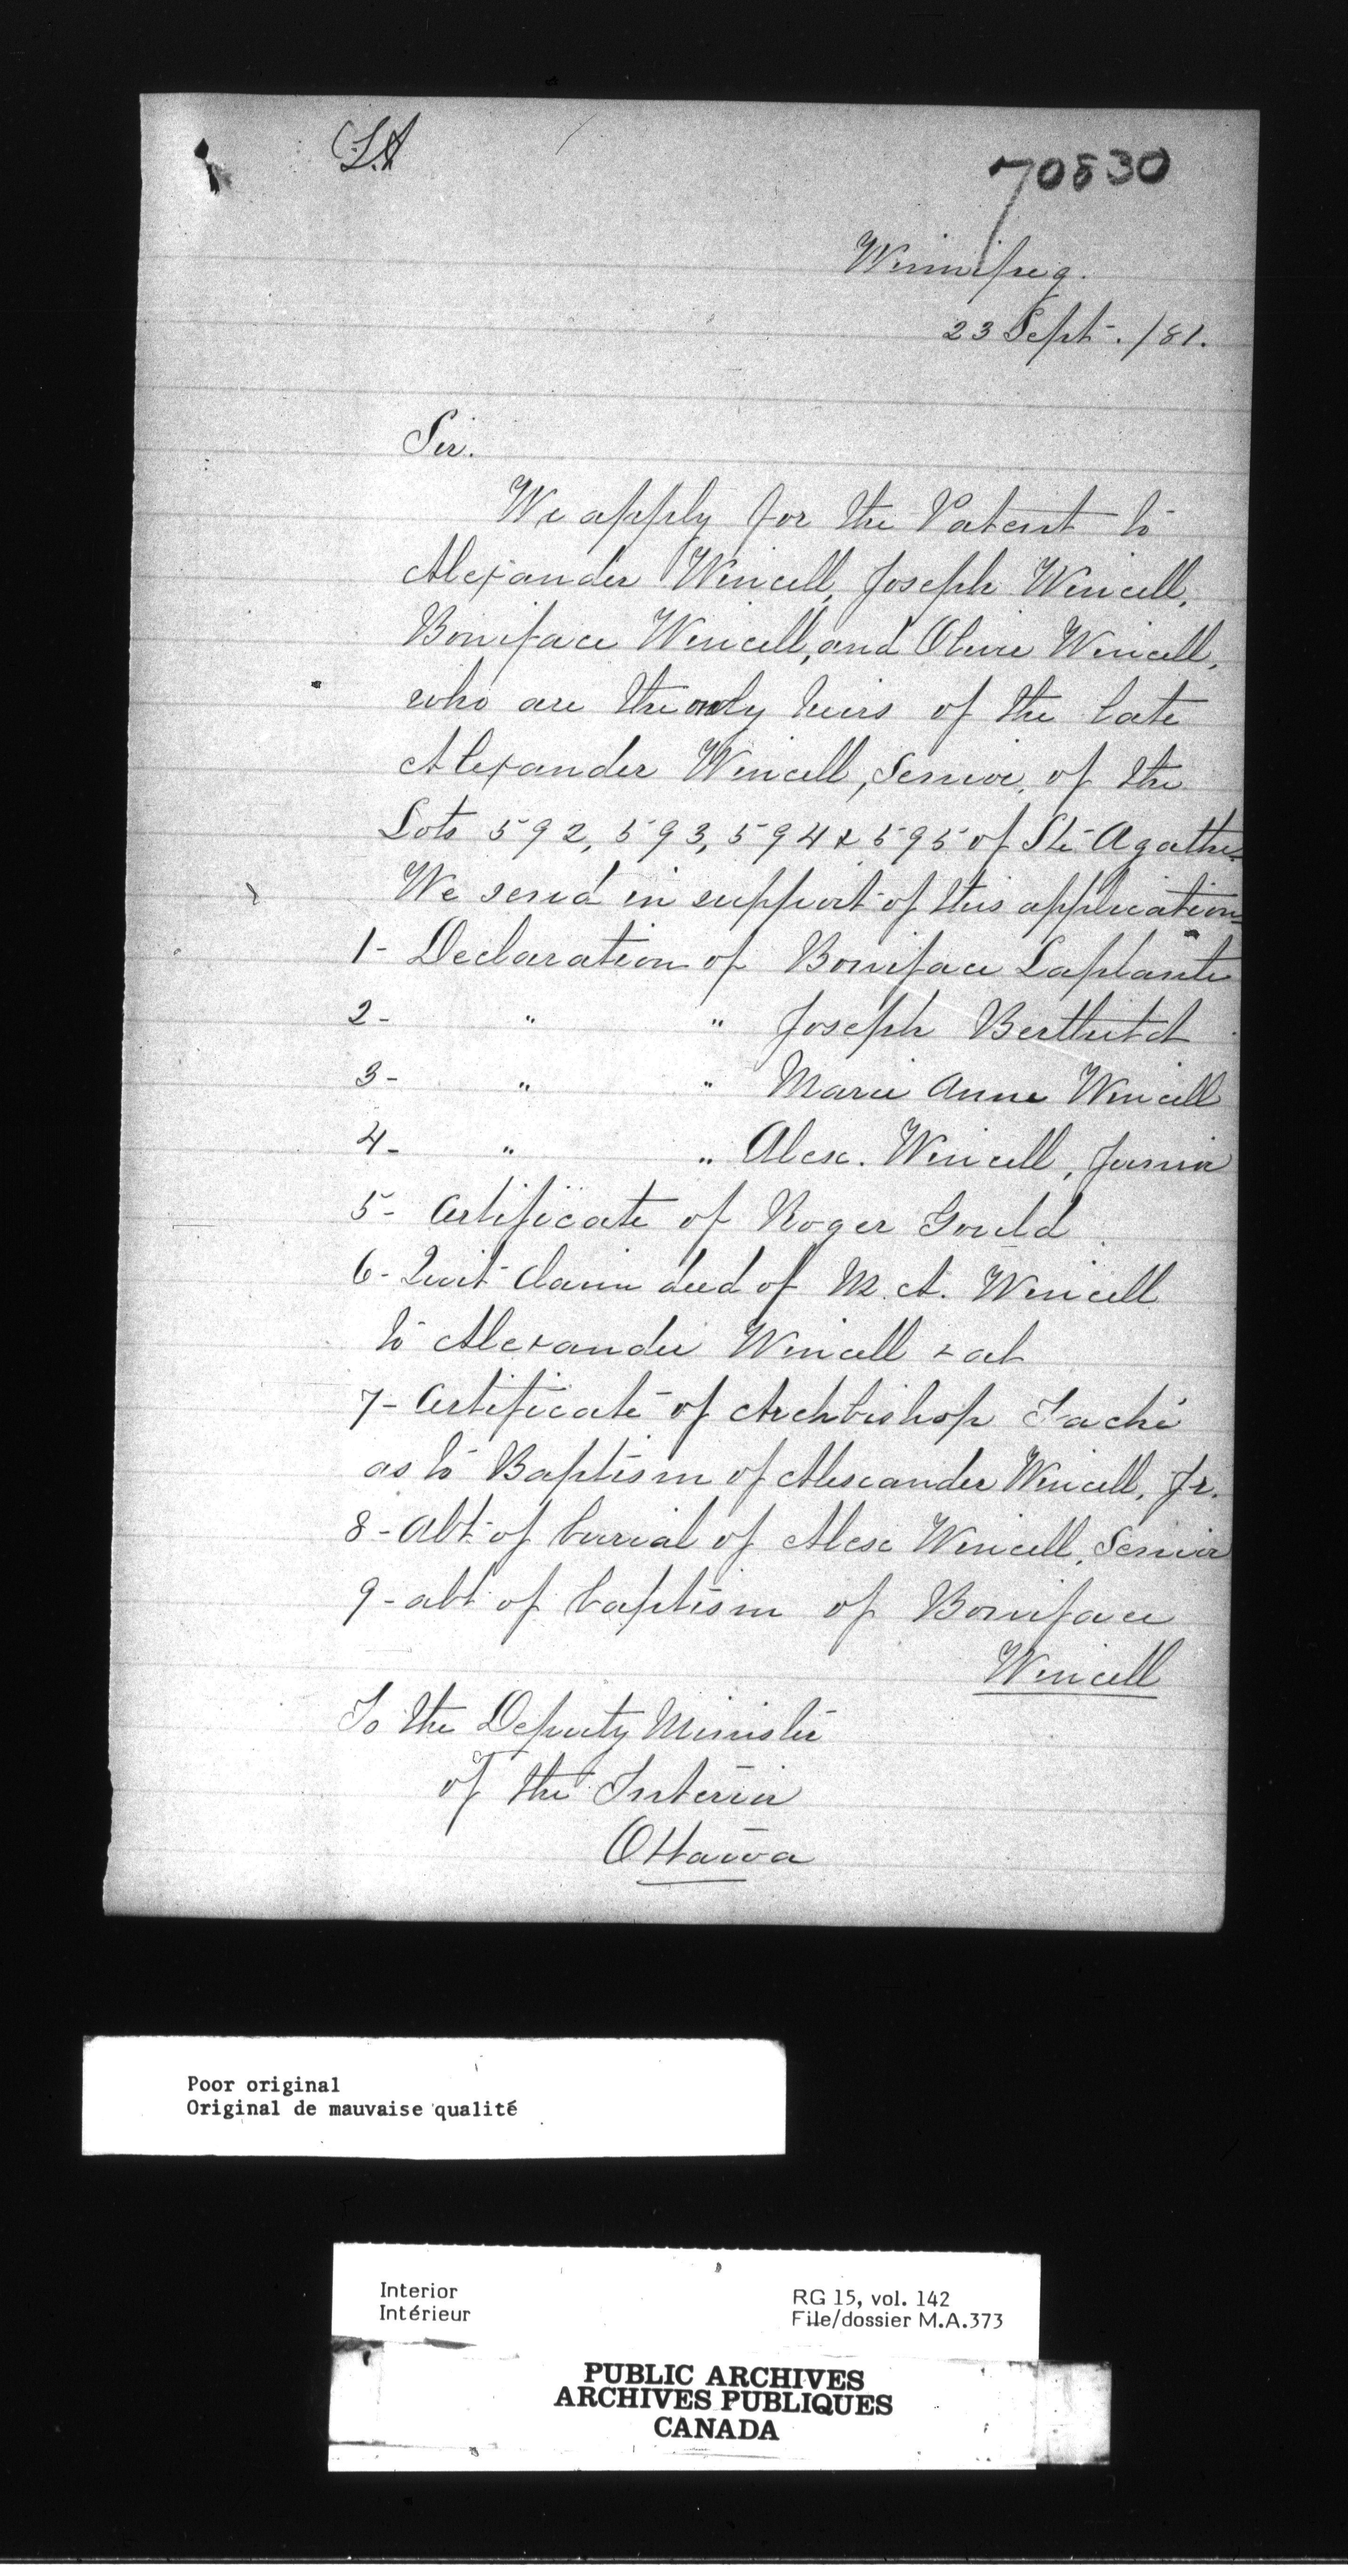 L.A
70830
Winnipeg.
23 Sept. /81.
Sir.
We apply for the Patent to
Alexander Wincell, Joseph Wincell,
Boniface Wincell, and Olivie Wincell,
who are the only heirs of the late
Alexander Wincell, Senior, of the
Lots 592, 593, 594 & 595 of Ste Agathe.
We send in support of this application
1- Declaration of Boniface Laplante
2- " " Joseph
3- " " Marie Anne Wincell
4- " " Alex. Wincell, Junior
5- Certificate of Roger Gould
6- Quit claim deed of M. A. Wincell
to Alexander Wincell & al
7- Certificate of Archbishop Taché
as to Baptism of Alexander Wincell, Jr.
8- Abt of burial of Alex Wincell, Senior
9- abt of baptism of Boniface
Wincell
To the Deputy Minister
of the Interior
Ottawa
Poor original
Original de mauvaise qualité
Interior
Intérieur
RG 15, vol. 142
File/dossier M.A.373
PUBLIC ARCHIVES
ARCHIVES PUBLIQUES
CANADA